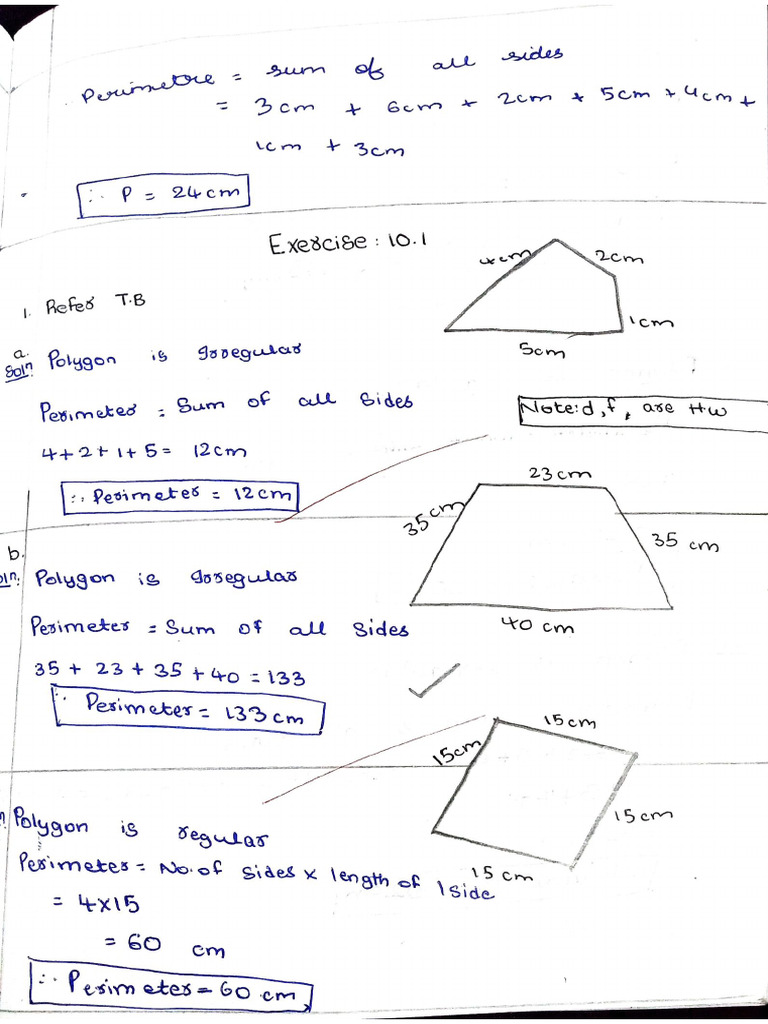 Perimetre = sum of all sides
= 3cm + 6cm + 2cm + 5cm + 4cm +
1cm + 3cm
∴ P = 24cm
Exercise: 10.1
4cm
2cm
1. Refer T.B
1cm
5cm
a.
Soln: Polygon is Irregular
Perimeter = Sum of all Sides
Note: d, f, are HW
4+2+1+5= 12cm
23cm
∴ Perimeter = 12cm
35cm
35 cm
b.
oln: Polygon is Irregular
Perimeter = Sum of all Sides
40 cm
35 + 23 + 35 + 40 = 133
∴ Perimeter = 133cm
15cm
15cm
15cm
Polygon is regular
Perimeter = No. of Sides x length of 1 side
15 cm
= 4x15
= 60 cm
∴ Perimeter = 60 cm